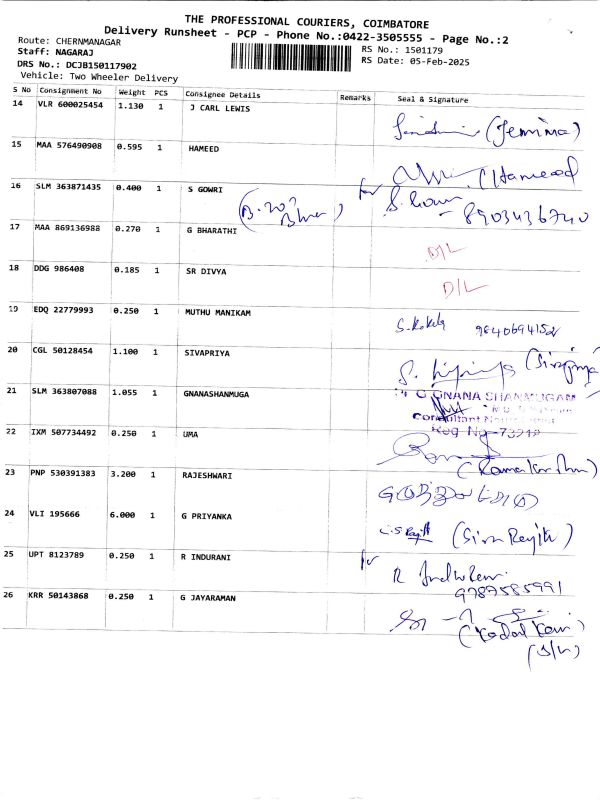 THE PROFESSIONAL COURIERS, COIMBATORE
Delivery Runsheet - PCP - Phone No.:0422-3505555 - Page No.:2
Route: CHERNMANAGAR
Staff: NAGARAJ
RS No.: 1501179
DRS No.: DCJB150117902
RS Date: 05-Feb-2025
Vehicle: Two Wheeler Delivery
S No Consignment No Weight PCS Consignee Details Remarks Seal & Signature
14 VLR 600025454 1.130 1 J CARL LEWIS (Jemima)
15 MAA 576490908 0.595 1 HAMEED (Hameed
16 SLM 363871435 0.400 1 S GOWRI for S. Gowri
8903436740
17 MAA 869136988 0.270 1 G BHARATHI D/L
18 DDG 986408 0.185 1 SR DIVYA D/L
19 EDQ 22779993 0.250 1 MUTHU MANIKAM
20 CGL 50128454 1.100 1 SIVAPRIYA
21 SLM 363807088 1.055 1 GNANASHANMUGA G GNANA SHANMUGAM
Consultant
22 IXM 507734492 0.250 1 UMA
23 PNP 530391383 3.200 1 RAJESHWARI
24 VLI 195666 6.000 1 G PRIYANKA
25 UPT 8123789 0.250 1 R INDURANI for
9787585991
26 KRR 50143868 0.250 1 G JAYARAMAN